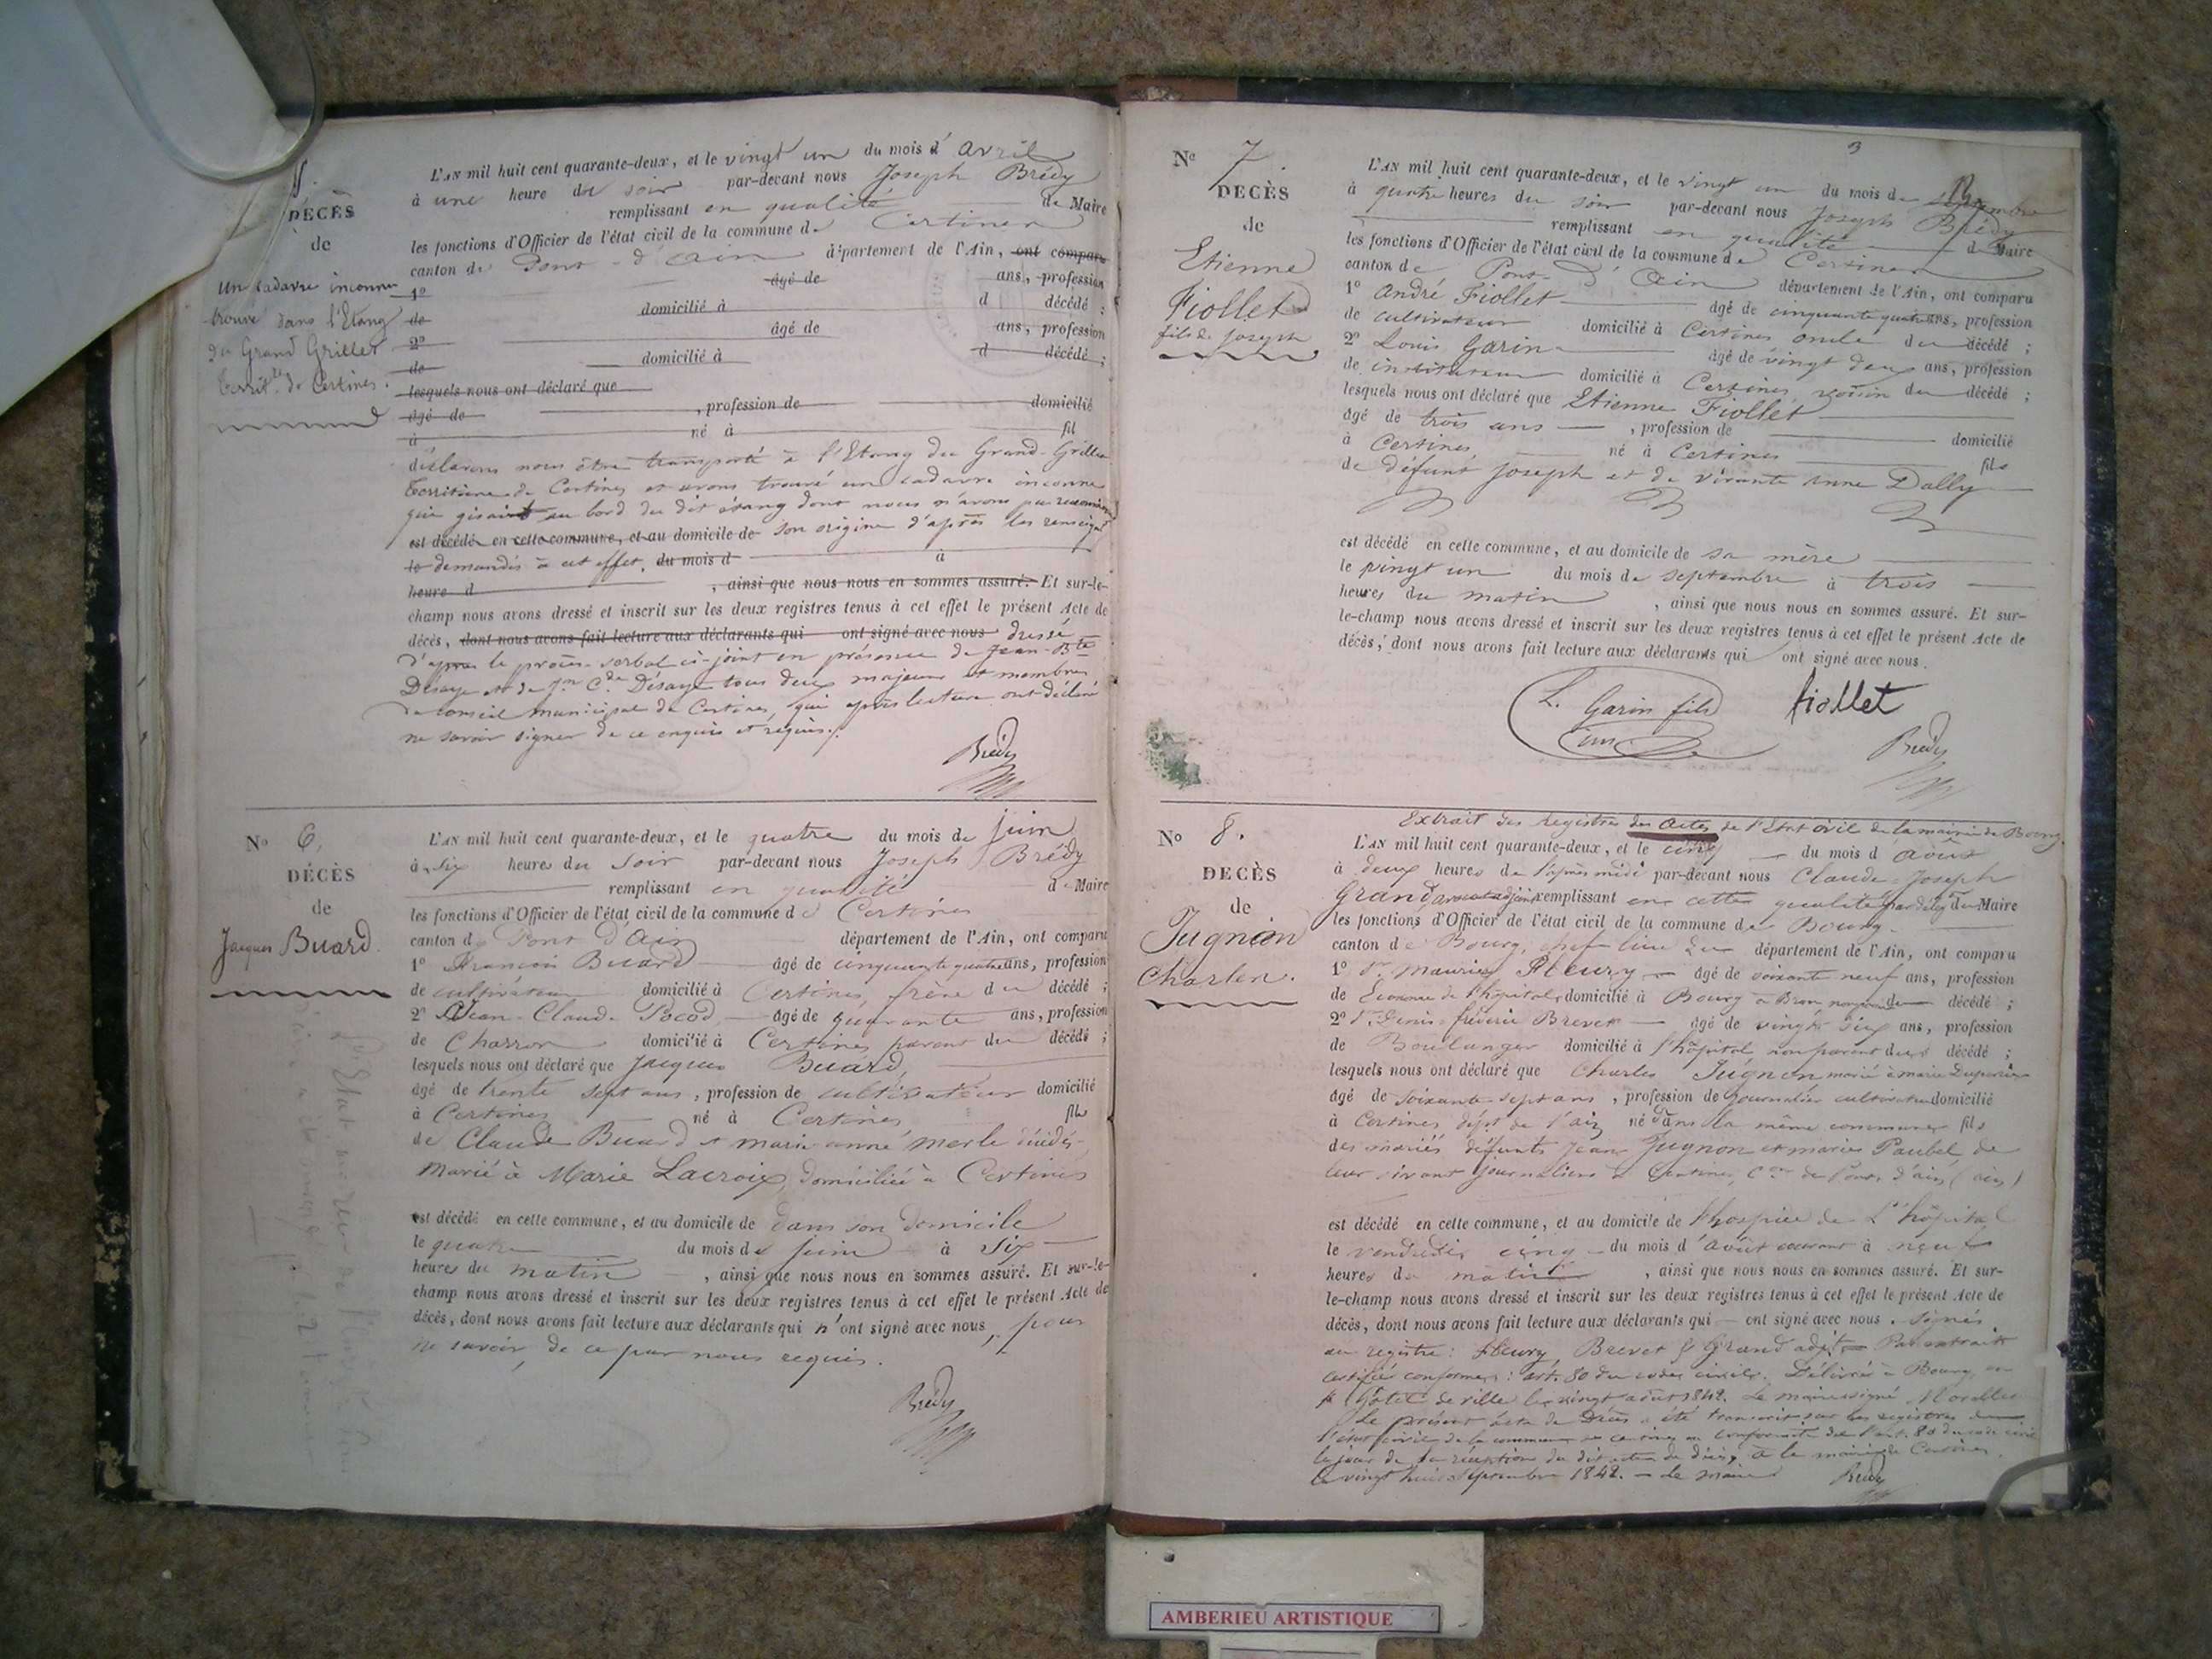 DÉCÈS
de
un cadavre inconnu
trouvé dans l'Etang
du Grand Grillet
territ.re de Certines.
L'AN mil huit cent quarante-deux, et le vingt un du mois d'avril
à une heure du soir par-devant nous Joseph Brédy
remplissant en qualité de Maire
les fonctions d'Officier de l'état civil de la commune de Certines
canton de Pont-d'Ain département de l'Ain, ont comparu
1° âgé de ans, profession
de domicilié à d décédé ;
2° âgé de ans, profession
de domicilié à d décédé ;
lesquels nous ont déclaré que
âgé de , profession de domicilié
à né à fil
déclarons nous être transporté à l'Etang du Grand-Grillet
territoire de Certines et avons trouvé un cadavre inconnu
qui gisait au bord du dit étang dont nous n'avons pu
est décédé en cette commune, et au domicile de son origine d'après les renseig.ts
le demandés à cet effet. du mois d à
heure d , ainsi que nous nous en sommes assuré. Et sur-le-
champ nous avons dressé et inscrit sur les deux registres tenus à cet effet le présent Acte de
décès, dont nous avons fait lecture aux déclarants qui ont signé avec nous dressé
d'après le procès-verbal ci-joint en présence de Jean-Bte
Désaye et de Désaye tous deux majeurs et membres
du conseil municipal de Certines, qui après lecture ont déclaré
ne savoir signer de ce enquis et requis.
Brédy
N° 6.
DÉCÈS
de
Jacques Buard.
L'AN mil huit cent quarante-deux, et le quatre du mois de juin
à six heures du soir par-devant nous Joseph Brédy
remplissant en qualité de Maire
les fonctions d'Officier de l'état civil de la commune de Certines
canton de Pont d'Ain département de l'Ain, ont comparu
1° François Buard âgé de cinquante quatre ans, profession
de cultivateur domicilié à Certines, frère du décédé ;
2° Jean-Claude Pocod, âgé de quarante ans, profession
de Charron domicilié à Certines parent du décédé ;
lesquels nous ont déclaré que Jacques Buard,
âgé de trente sept ans, profession de cultivateur domicilié
à Certines né à Certines fils
de Claude Buard et marie anne merle décédés,
marié à Marie Lacroix, domiciliée à Certines
est décédé en cette commune, et au domicile de dans son domicile
le quatre du mois de juin à six
heures du matin , ainsi que nous nous en sommes assuré. Et sur-le-
champ nous avons dressé et inscrit sur les deux registres tenus à cet effet le présent Acte de
décès, dont nous avons fait lecture aux déclarants qui n'ont signé avec nous, pour
ne savoir, de ce par nous requis.
Brédy
3
N° 7.
DECÈS
de
Etienne
Fiollet
fils de Joseph
L'AN mil huit cent quarante-deux, et le vingt un du mois de
à quatre heures du soir par-devant nous Joseph Brédy
remplissant en qualité d Maire
les fonctions d'Officier de l'état civil de la commune de Certines
canton de Pont-d'Ain département de l'Ain, ont comparu
1° André Fiollet âgé de cinquante quatre ans, profession
de cultivateur domicilié à Certines oncle du décédé ;
2° Louis Garin âgé de vingt deux ans, profession
de instituteur domicilié à Certines, voisin du décédé ;
lesquels nous ont déclaré que Etienne Fiollet
âgé de trois ans , profession de domicilié
à Certines né à Certines fils
de défunt Joseph et de vivante Anne Dally
est décédé en cette commune, et au domicile de sa mère
le vingt un du mois de septembre à trois
heures du matin , ainsi que nous nous en sommes assuré. Et sur-
le-champ nous avons dressé et inscrit sur les deux registres tenus à cet effet le présent Acte de
décès, dont nous avons fait lecture aux déclarants qui ont signé avec nous.
L. Garin fils
fiollet
Brédy
N° 8.
DECÈS
de
Jugnon
Charles.
Extrait des Registres des actes de l'Etat civil de la mairie de Bourg.
L'AN mil huit cent quarante-deux, et le cinq du mois d'août
à deux heures de l'après midi par-devant nous Claude-Joseph
Grand remplissant en cette qualité par délég. du Maire
les fonctions d'Officier de l'état civil de la commune de Bourg
canton de Bourg, chef lieu du département de l'Ain, ont comparu
1° Sr. Maurice Fleury âgé de soixante neuf ans, profession
de Econome de l'hôpital, domicilié à Bourg décédé ;
2° Sr. Denis-fréderic Brevet âgé de vingt six ans, profession
de Boulanger domicilié à l'hôpital non parent du décédé ;
lesquels nous ont déclaré que Charles Jugnon marié à marie
âgé de soixante-sept ans, profession de journalier cultivateur domicilié
à Certines dépt de l'ain né dans la même commune fils
des mariés défunts Jean Jugnon et marie Paubel de
leur vivant journaliers à Certines, con de Pont d'ain (ain)
est décédé en cette commune, et au domicile de l'hospice de L'hôpital
le vendredi cinq du mois d'août courant à neuf
heures du matin , ainsi que nous nous en sommes assuré. Et sur-
le-champ nous avons dressé et inscrit sur les deux registres tenus à cet effet le présent Acte de
décès, dont nous avons fait lecture aux déclarants qui ont signé avec nous. Signés
au registre : Fleury, Brevet & Grand adjt. Par extrait
certifié conforme : art. 80 du code civil. Délivré à Bourg en
l'hôtel de ville le vingt août 1842. Le maire signé
Le présent acte de Décès a été transcrit sur les registres de
l'état civil de la commune de Certines en conformité de l'art. 80 du code civil
le jour de la réception du dit acte de décès, à la mairie de Certines
le vingt huit septembre 1842. - Le maire Brédy
AMBERIEU ARTISTIQUE